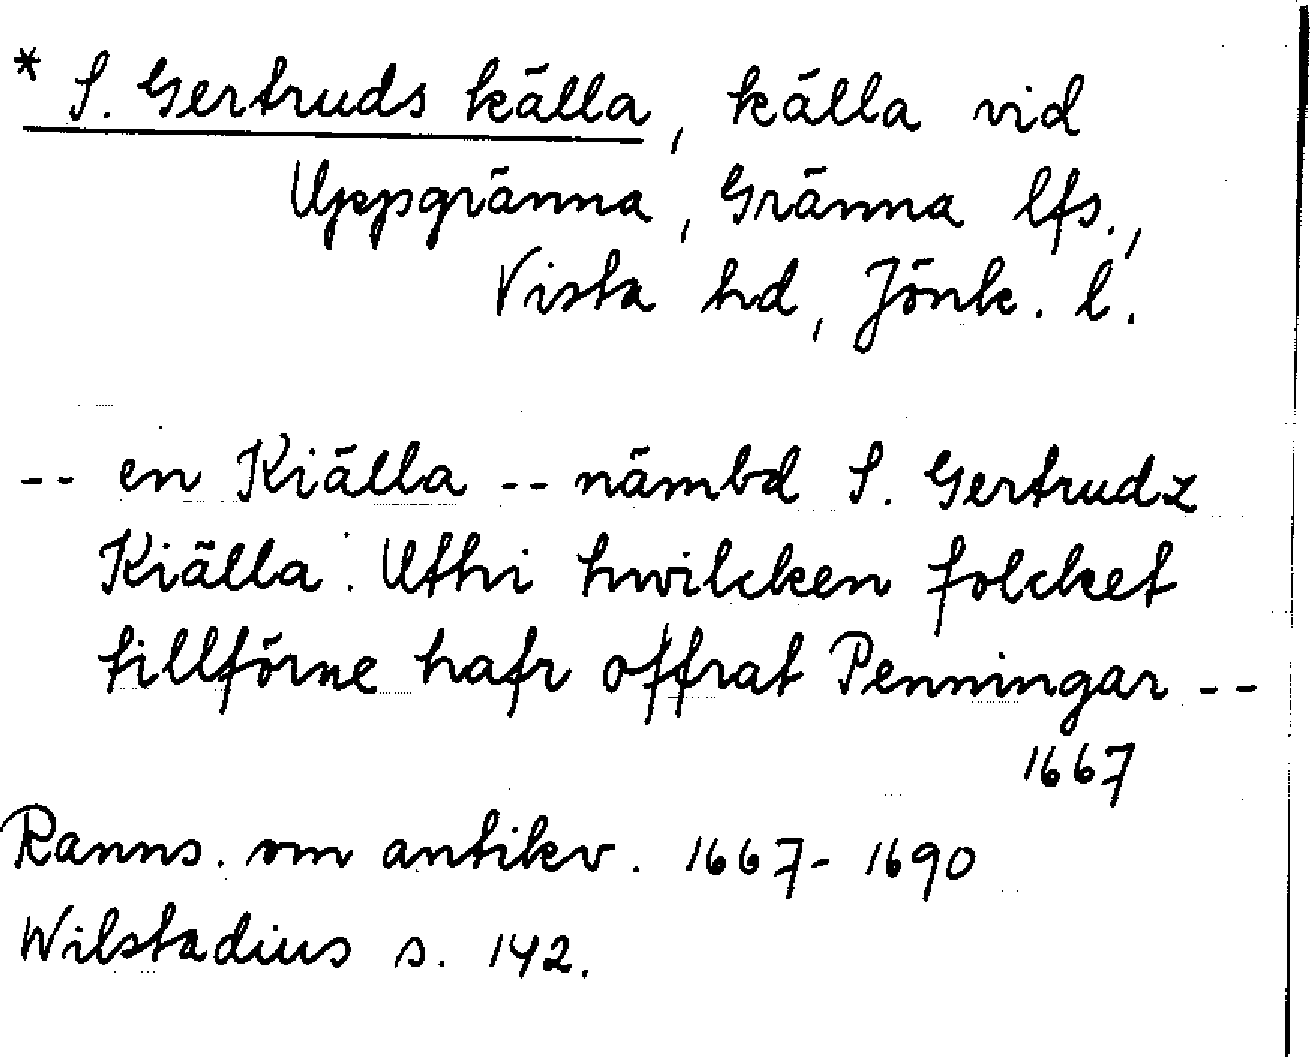 * S. Gertruds källa, källa vid
Uppgränna, Gränna lfs.,
Vista hd, Jönk. l.
-- en Kiälla -- nämbd S. Gertrudz
Kiälla. Uthi hwilcken folcket
tillförne hafr offrat Penningar --
1667
Ranns. om antikv. 1667-1690
Wilstadius s. 142.